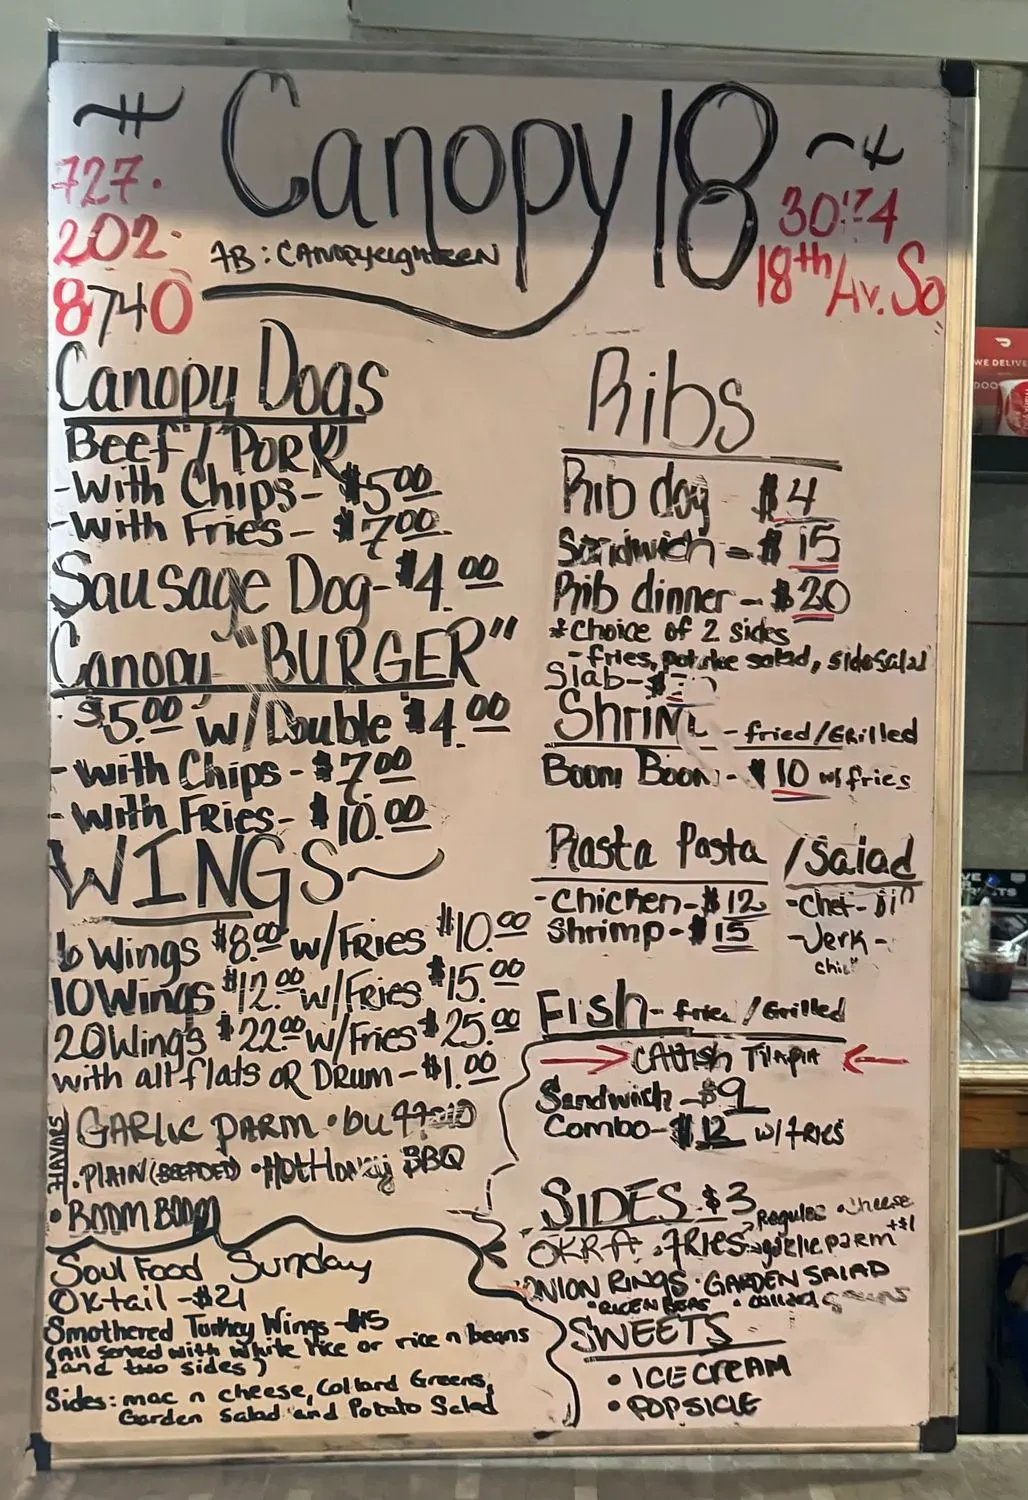 Canopy 18
727.
202.
8740
FB: CANOPYeighteen
18th Av. So
Canopy Dogs
Beef / PORK
-With Chips- $5.00
-With Fries- $7.00
Sausage Dog- $4.00
Canopy "BURGER"
$5.00 w/Double $4.00
-With Chips- $7.00
-With Fries- $10.00
WINGS
6 Wings $8.00 w/FRies $10.00
10 Wings $12.00 w/Fries $15.00
20 Wings $22.00 w/Fries $25.00
with all flats OR DRUM-$1.00
GARLIC PARM • buffalo
• PLAIN (BREADED) • Hot Honey BBQ
• BOOM BOOM
Soul Food Sunday
Oxtail -$21
Smothered Turkey Wings -$15
(All served with white rice or rice n beans
and two sides)
Sides: mac n cheese, Collard Greens,
Garden Salad and Potato Salad
Ribs
Rib dog $4
Sandwich - $15
Rib dinner - $20
*choice of 2 sides
- fries, potatoe salad, sidesalad
Slab-
- fried/Grilled
Boom Boom - $10 w/fries
Rasta Pasta / Salad
-Chicken-$12
Shrimp-$15
-Chef-
-Jerk-
Fish- fried /Grilled
CATfish TilAPiA
Sandwich -$9
Combo-$12 w/FRiES
SIDES $3
OKRA • FRiES Regular • Cheese +$1
garlic parm
ONION RINGS • GARDEN SALAD
• RICE N BEANS • collard greens
SWEETS
• ICE CREAM
• POPSICLE
WE DELIVE